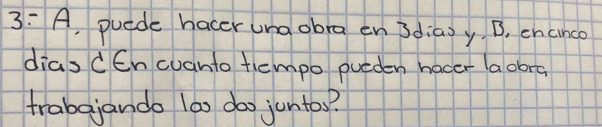 3:- A, puede hacer una obra en 3días y, B, en cinco
días ¿En cuanto tiempo pueden hacer la obra
trabajando los dos juntos?